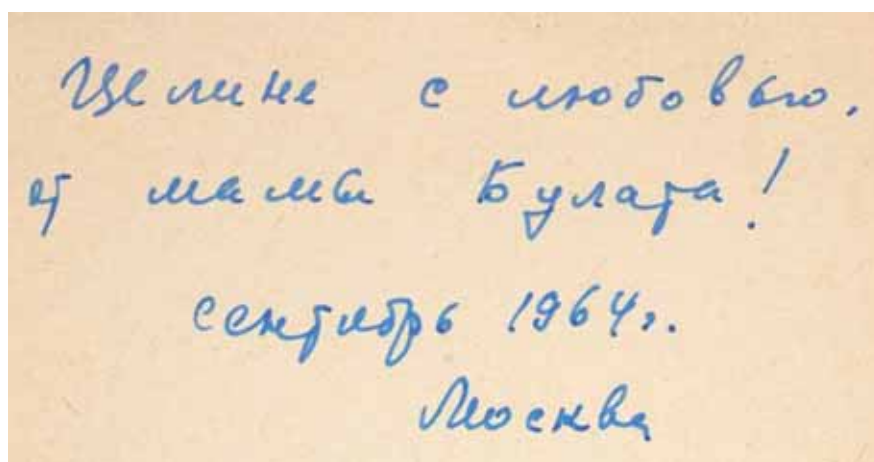 Целине с любовью,
от мамы Булата!
сентябрь 1964г.
Москва